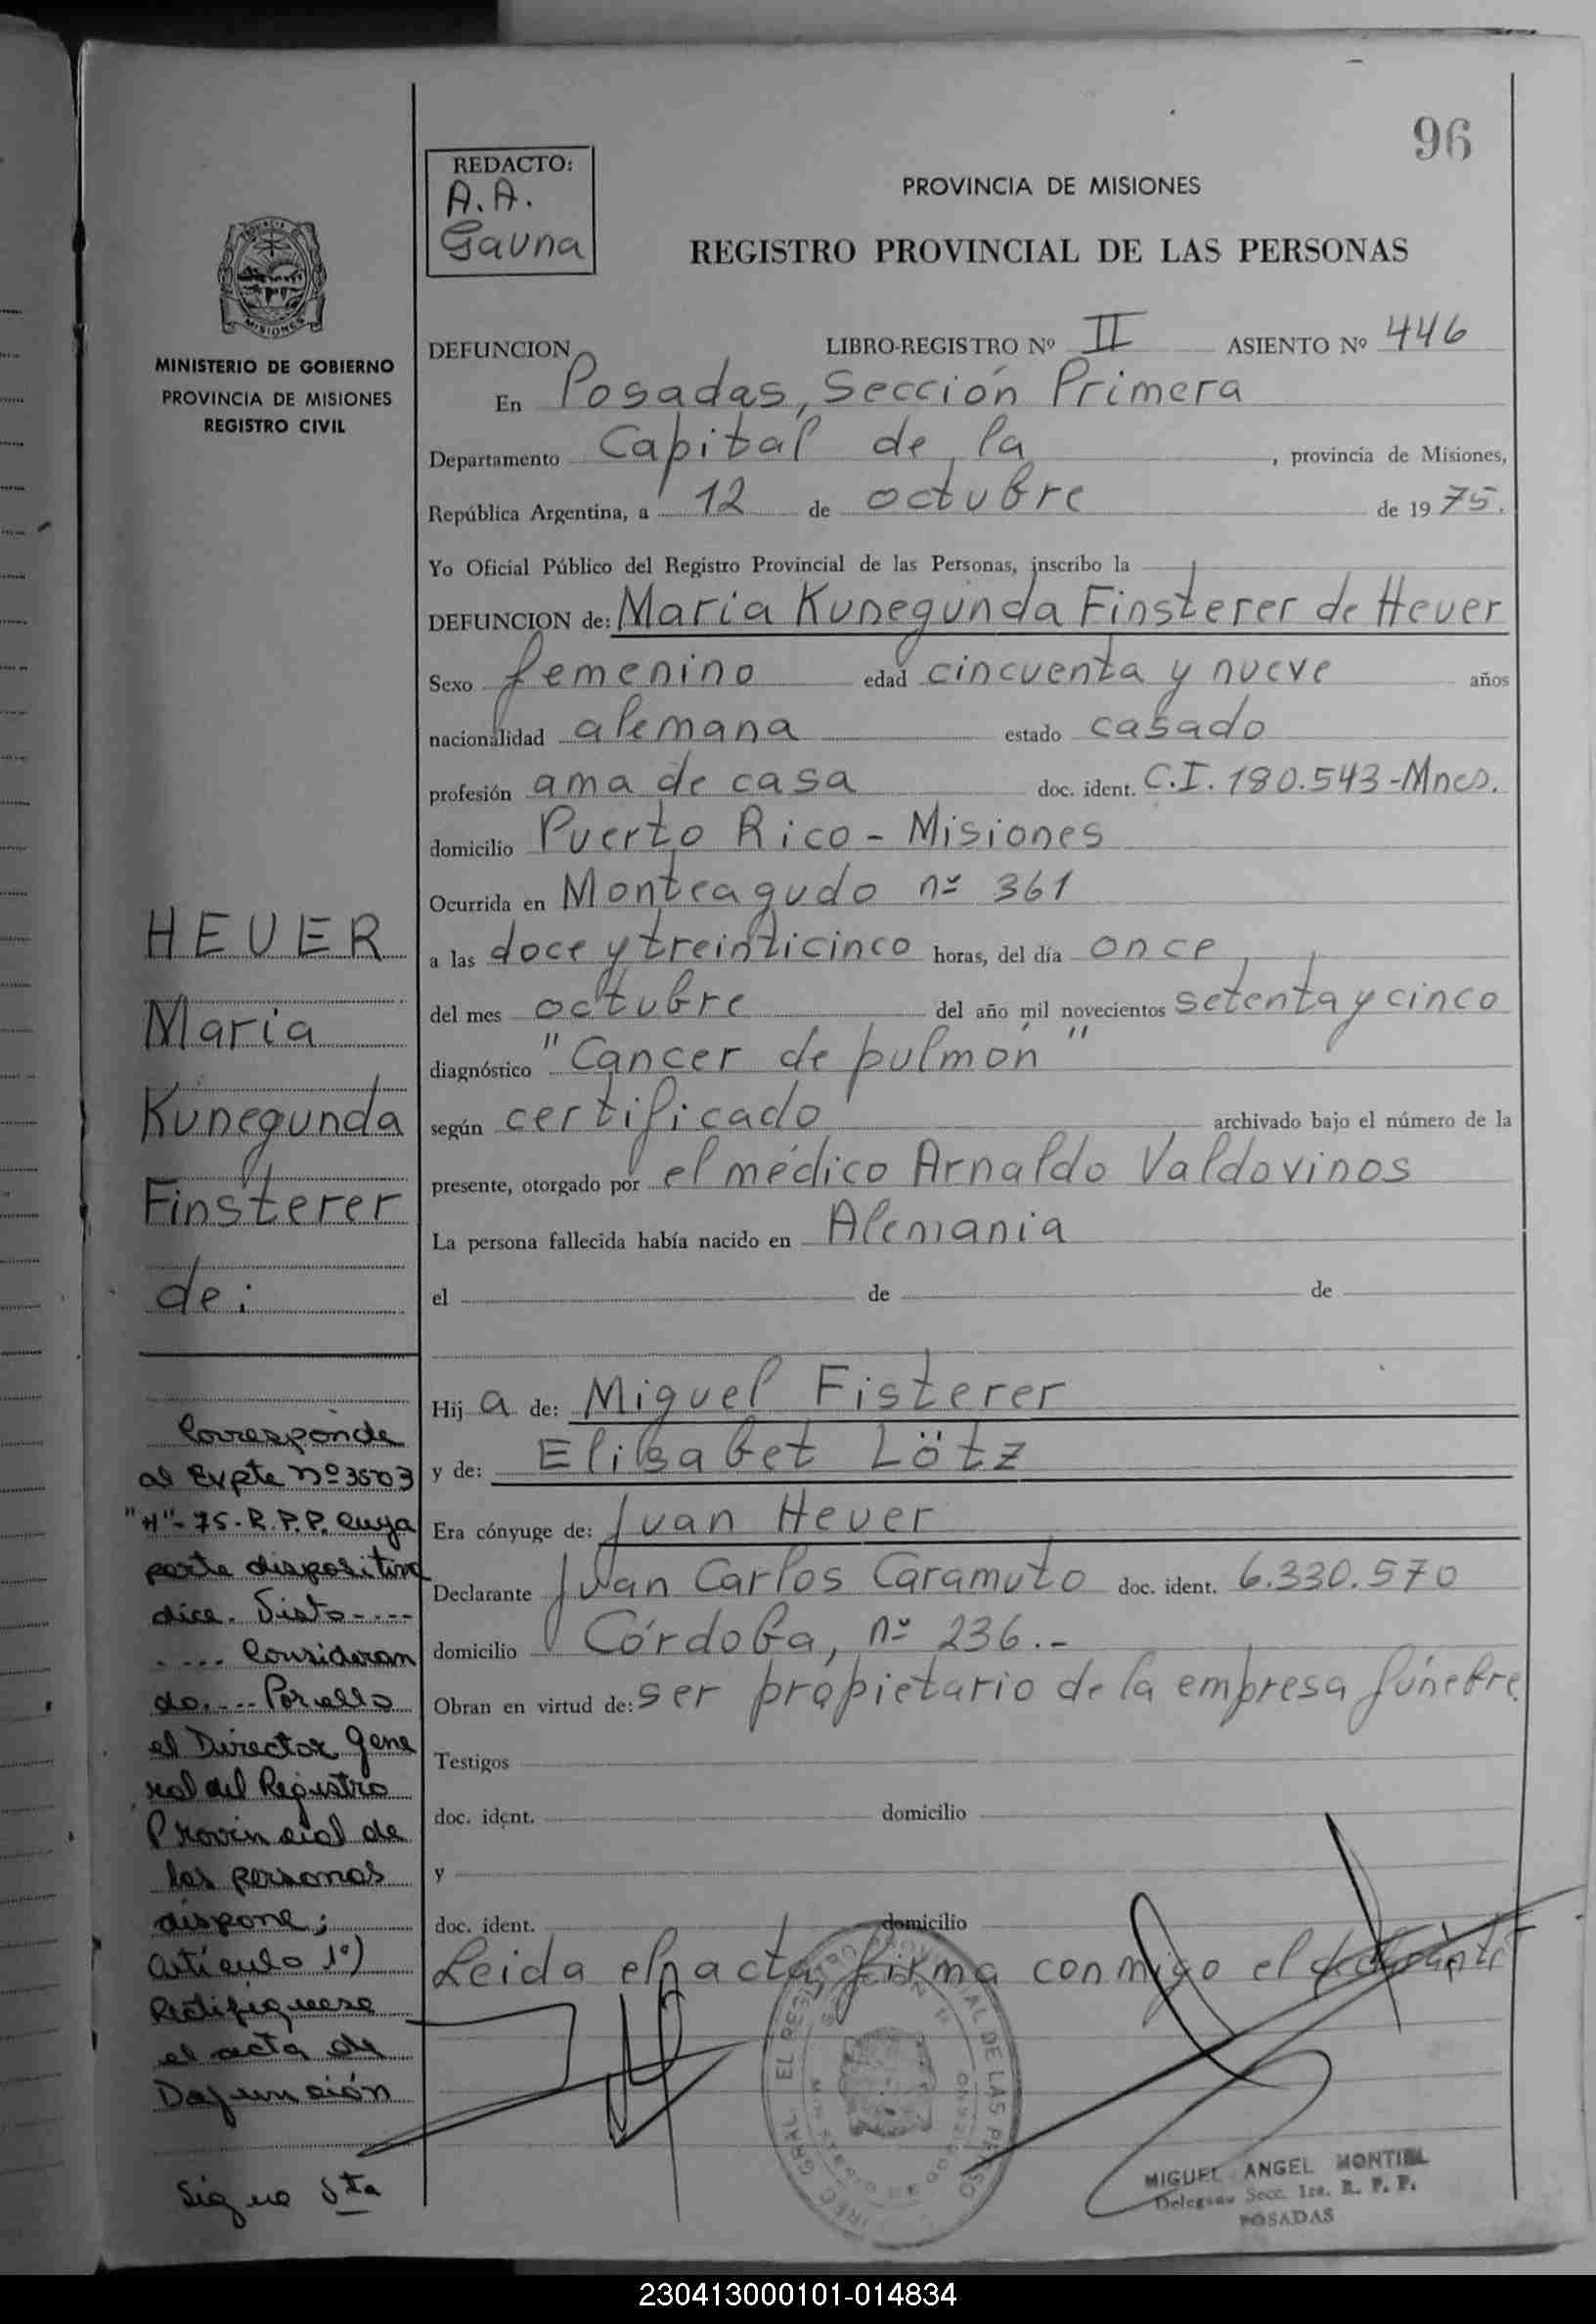 96
REDACTO:
A. A.
Gauna
PROVINCIA DE MISIONES
REGISTRO PROVINCIAL DE LAS PERSONAS
MISIONES
MINISTERIO DE GOBIERNO
PROVINCIA DE MISIONES
REGISTRO CIVIL
DEFUNCION LIBRO-REGISTRO Nº II ASIENTO Nº 446
En Posadas, Sección Primera
Departamento Capital de la , provincia de Misiones,
República Argentina, a 12 de octubre de 1975.
Yo Oficial Público del Registro Provincial de las Personas, inscribo la
DEFUNCION de: Maria Kunegunda Finsterer de Heuer
Sexo femenino edad cincuenta y nueve años
nacionalidad alemana estado casado
profesión ama de casa doc. ident. C.I. 180.543-Mnes.
domicilio Puerto Rico - Misiones
Ocurrida en Monteagudo nº 361
a las doce y treinticinco horas, del día once
del mes octubre del año mil novecientos setenta y cinco
diagnóstico "Cancer de pulmón"
según certificado archivado bajo el número de la
presente, otorgado por el médico Arnaldo Valdovinos
La persona fallecida había nacido en Alemania
el de de
Hij a de: Miguel Fisterer
y de: Elisabet Lötz
Era cónyuge de: Juan Heuer
Declarante Juan Carlos Caramuto doc. ident. 6.330.570
domicilio Córdoba, nº 236.-
Obran en virtud de: ser propietario de la empresa fúnebre
Testigos
doc. ident. domicilio
y
doc. ident. domicilio
Leida el acta, firma conmigo el
MIGUEL ANGEL MONTIEL
Delegado Secc. 1ra. R. P. P.
POSADAS
HEUER
Maria
Kunegunda
Finsterer
de:
Corresponde
al Expte nº 3503
"H"-75-R.P.P. cuya
parte dispositiva
dice. Visto-....
.... Consideran
do.... Por ello
el Director Gene
ral del Registro
Provincial de
las personas
dispone;
Artículo 1º)
Rectifiquese
el acta de
Defunción
Sigue Vta
230413000101-014834